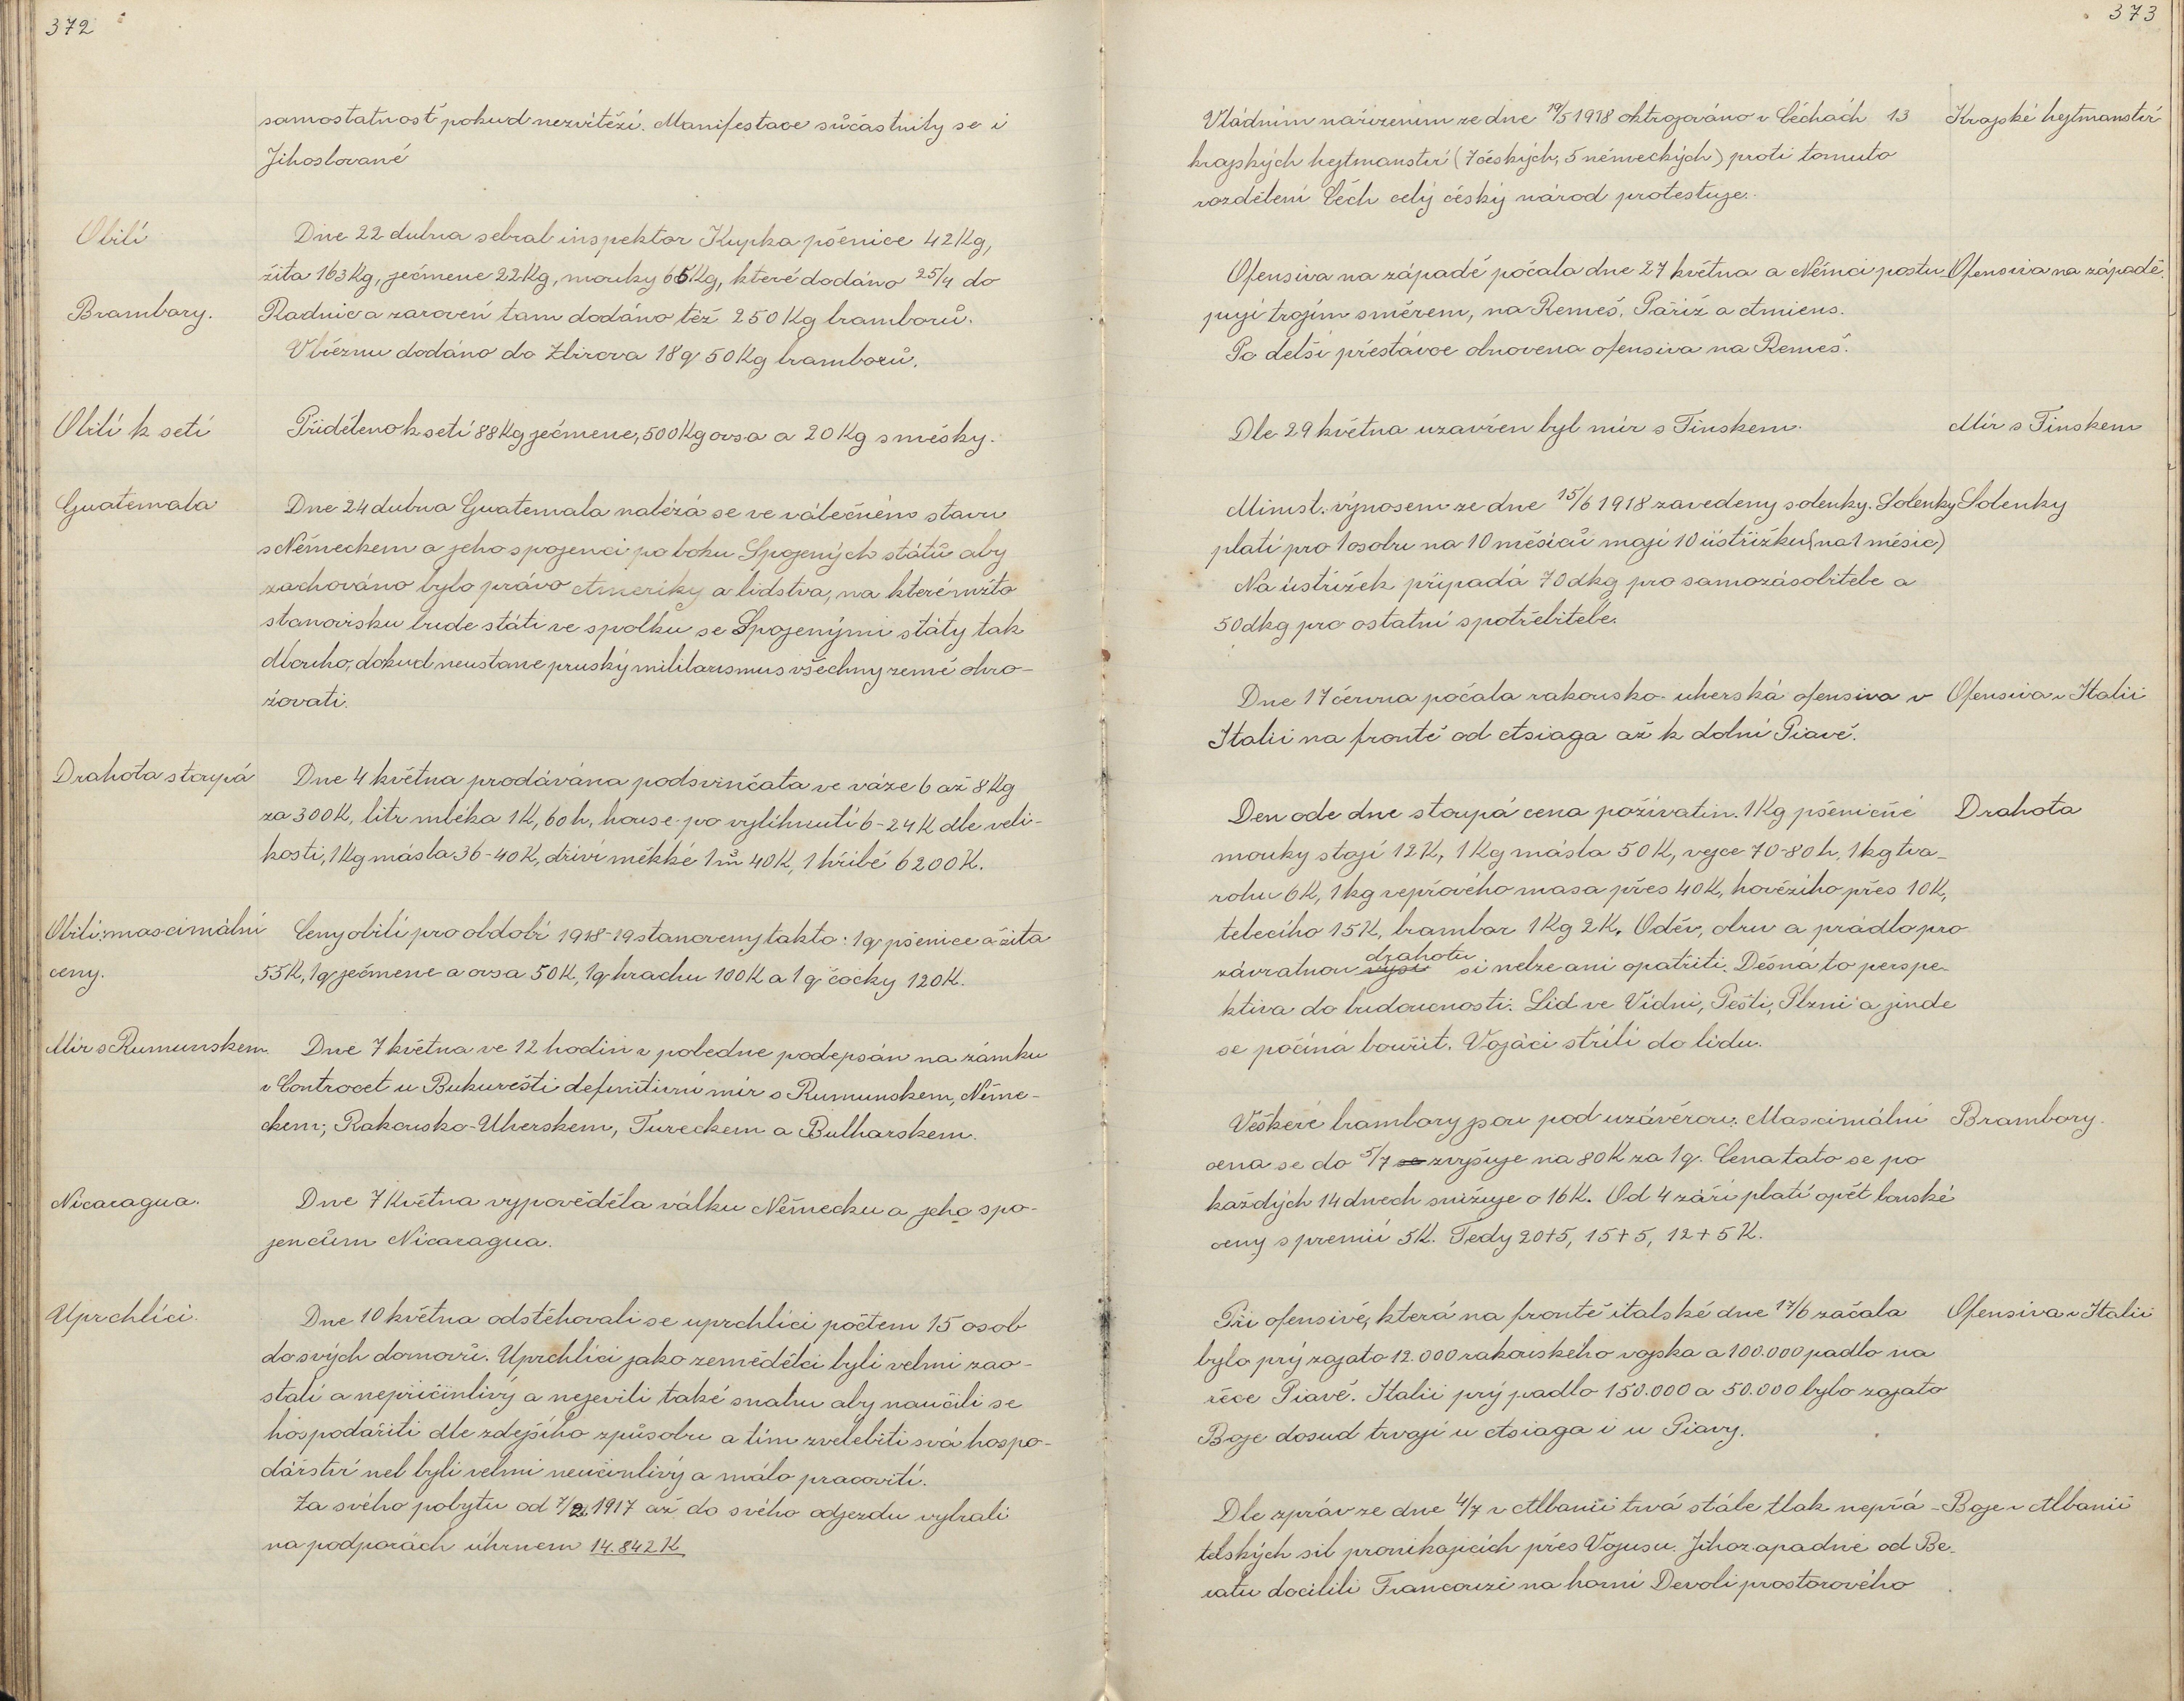 372
samostatnost pokud nezvítězí. Manifestace súčastnily se i
Jihoslované
Obilí
Dne 22 dubna sebral inspektor Kupka pšenice 42 Kg,
žita 163 Kg, ječmene 22 Kg, mouky 65 Kg, které dodáno 25/4 do
Brambory.
Radnic a zaroveń tam dodáno též 250 Kg bramborů.
V březnu dodáno do Zbirova 18 q 50 Kg bramborů.
Obilí k setí
Přiděleno k setí 88 Kg ječmene, 500 Kg ovsa a 20 Kg směsky.
Guatemala
Dne 24 dubna Guatemala nalézá se ve válečném stavu
s Německem a jeho spojenci po boku Spojených států aby
zachováno bylo právo Ameriky a lidstva, na kterémžto
stanovisku bude státi ve spolku se Spojenými státy tak
dlouho, dokud neustane pruský militarismus všechny země ohro-
žovati.
Drahota stoupá
Dne 4 května prodávána podsvinčata ve váze 6 až 8 Kg
za 300 K, litr mléka 1 K, 60 h, house po vylíhnutí 6-24 K dle veli-
kosti, 1 Kg másla 36-40 K, dříví měkké 1 m³ 40 K, 1 hříbě 6200 K.
Obilí: maximální
ceny.
Ceny obilí pro období 1918-19 stanoveny takto: 1 q pšenice a žita
55 K, 1 q ječmene a ovsa 50 K, 1 q hrachu 100 K a 1 q čočky 120 K.
Mír s Rumunskem.
Dne 7 května ve 12 hodin v poledne podepsán na zámku
v Controcet u Bukurešti definitivní mír s Rumunskem, Něme-
ckem, Rakousko-Uherskem, Tureckem a Bulharskem.
Nicaragua.
Dne 7 Května vypověděla válku Německu a jeho spo-
jencům Nicaragua.
Uprchlíci.
Dne 10 května odstěhovali se uprchlíci počtem 15 osob
do svých domovů. Uprchlíci jako zemědělci byli velmi zao-
stalí a nepřičinlivý a nejevili také snahu aby naučili se
hospodařiti dle zdejšího způsobu a tím zvelebiti svá hospo-
dářství neb byli velmi neučinlivý a málo pracovití.
Za svého pobytu od 7/2 1917 až do svého odjezdu vybrali
na podporách úhrnem 14.842 K
373
Vládním nařízením ze dne 19/5 1918 oktrojováno v Čechách 13
Krajské hejtmanství
krajských hejtmanství (7 českých, 5 německých) proti tomuto
rozdělení Čech celý český národ protestuje.
Ofensiva na západě počala dne 27 května a Němci postu-
Ofensiva na západě.
pují trojím směrem, na Remeš, Paříž a Amiens.
Po delší přestávce obnovena ofensiva na Remeš.
Dle 29 května uzavřen byl mír s Finskem.
Mír s Finskem
Minist. výnosem ze dne 15/6 1918 zavedeny solenky. Solenky
Solenky
platí pro 1 osobu na 10 měsíců mají 10 ústřižků (na 1 měsíc)
Na ústřižek připadá 70 dkg pro samozásobitele a
50 dkg pro ostatní spotřebitele.
Dne 17 června počala rakousko-uherská ofensiva v
Ofensiva v Italii
Italii na frontě od Asiaga až k dolní Piavě.
Den ode dne stoupá cena poživatin. 1 Kg pšeničné
Drahota
mouky stojí 12 K, 1 Kg másla 50 K, vejce 70-80 h, 1 kg tva-
rohu 6 K, 1 kg vepřového masa přes 40 K, hovězího přes 10 K,
telecího 15 K, brambor 1 Kg 2 K. Oděv, obuv a prádlo pro
závratnou výši drahotu si nelze ani opatřiti. Děsná to perspe-
ktiva do budoucnosti. Lid ve Vídni, Pešti, Plzni a jinde
se počíná bouřit. Vojáci střílí do lidu.
Veškeré brambory jsou pod uzávěrou. Maximální
Brambory.
cena se do 5/7 se zvyšuje na 80 K za 1 q. Cena tato se po
každých 14 dnech snižuje o 16 K. Od 4 září platí opět loňské
ceny s premií 5 K. Tedy 20+5, 15+5, 12+5 K.
Při ofensivě, která na frontě italské dne 17/6 začala
Ofensiva v Italii
bylo prý zajato 12.000 rakouského vojska a 100.000 padlo na
řece Piavě. Italů prý padlo 150.000 a 50.000 bylo zajato
Boje dosud trvají u Asiaga i u Piavy.
Dle zpráv ze dne 4/7 v Albanii trvá stále tlak nepřá-
Boje v Albanii
telských sil pronikajících přes Vojusu. Jihozapadně od Be-
ratu docílili Francouzi na horní Devoli prostorového